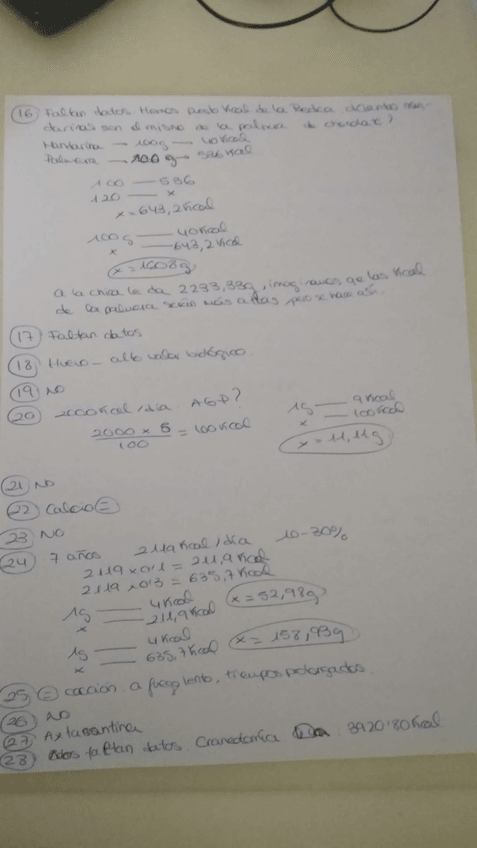 16 Faltan datos. Hemos puesto Kcal de la Bedca. ¿cuántas man-
darinas son el mismo de la palmera de chocolate?
Mandarina → 100g → 40Kcal
Palmera → 100 g → 536 Kcal
100 — 536
120 — x
x = 643,2Kcal
100g — 40Kcal
x — 643,2Kcal
x = 1608g
a la chica le da 2233,33g, imaginamos que las Kcal
de la palmera serán más altas pero se hace así.
17 Faltan datos
18 Huevo - alto valor biológico.
19 NO
20 2000Kcal/día AGP?
2000 x 5 / 100 = 100Kcal
1g — 9Kcal
x — 100Kcal
x = 11,11g
21 NO
22 Calcio =
23 NO
24 7 años 2119Kcal/día 10-30%
2119 x 0'1 = 211,9Kcal
2119 x 0'3 = 635,7Kcal
1g — 4Kcal
x — 211,9Kcal
x = 52,98g
1g — 4Kcal
x — 635,7Kcal
x = 158,93g
25 = cocción a fuego lento, tiempos prolongados.
26 NO
27 Axtasantina
28 faltan datos. 3920'80Kcal